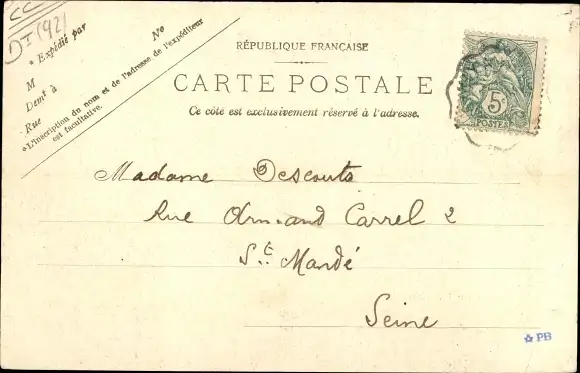 CC
DI (92)
* Expédié par
M
Demt à
Rue No
* L'inscription du nom et de l'adresse de l'expéditeur
est facultative.
RÉPUBLIQUE FRANÇAISE
CARTE POSTALE
Ce côté est exclusivement réservé à l'adresse.
5c
POSTES
Madame Descouts
Rue Armand Carrel 2
St. Mandé
Seine
PB